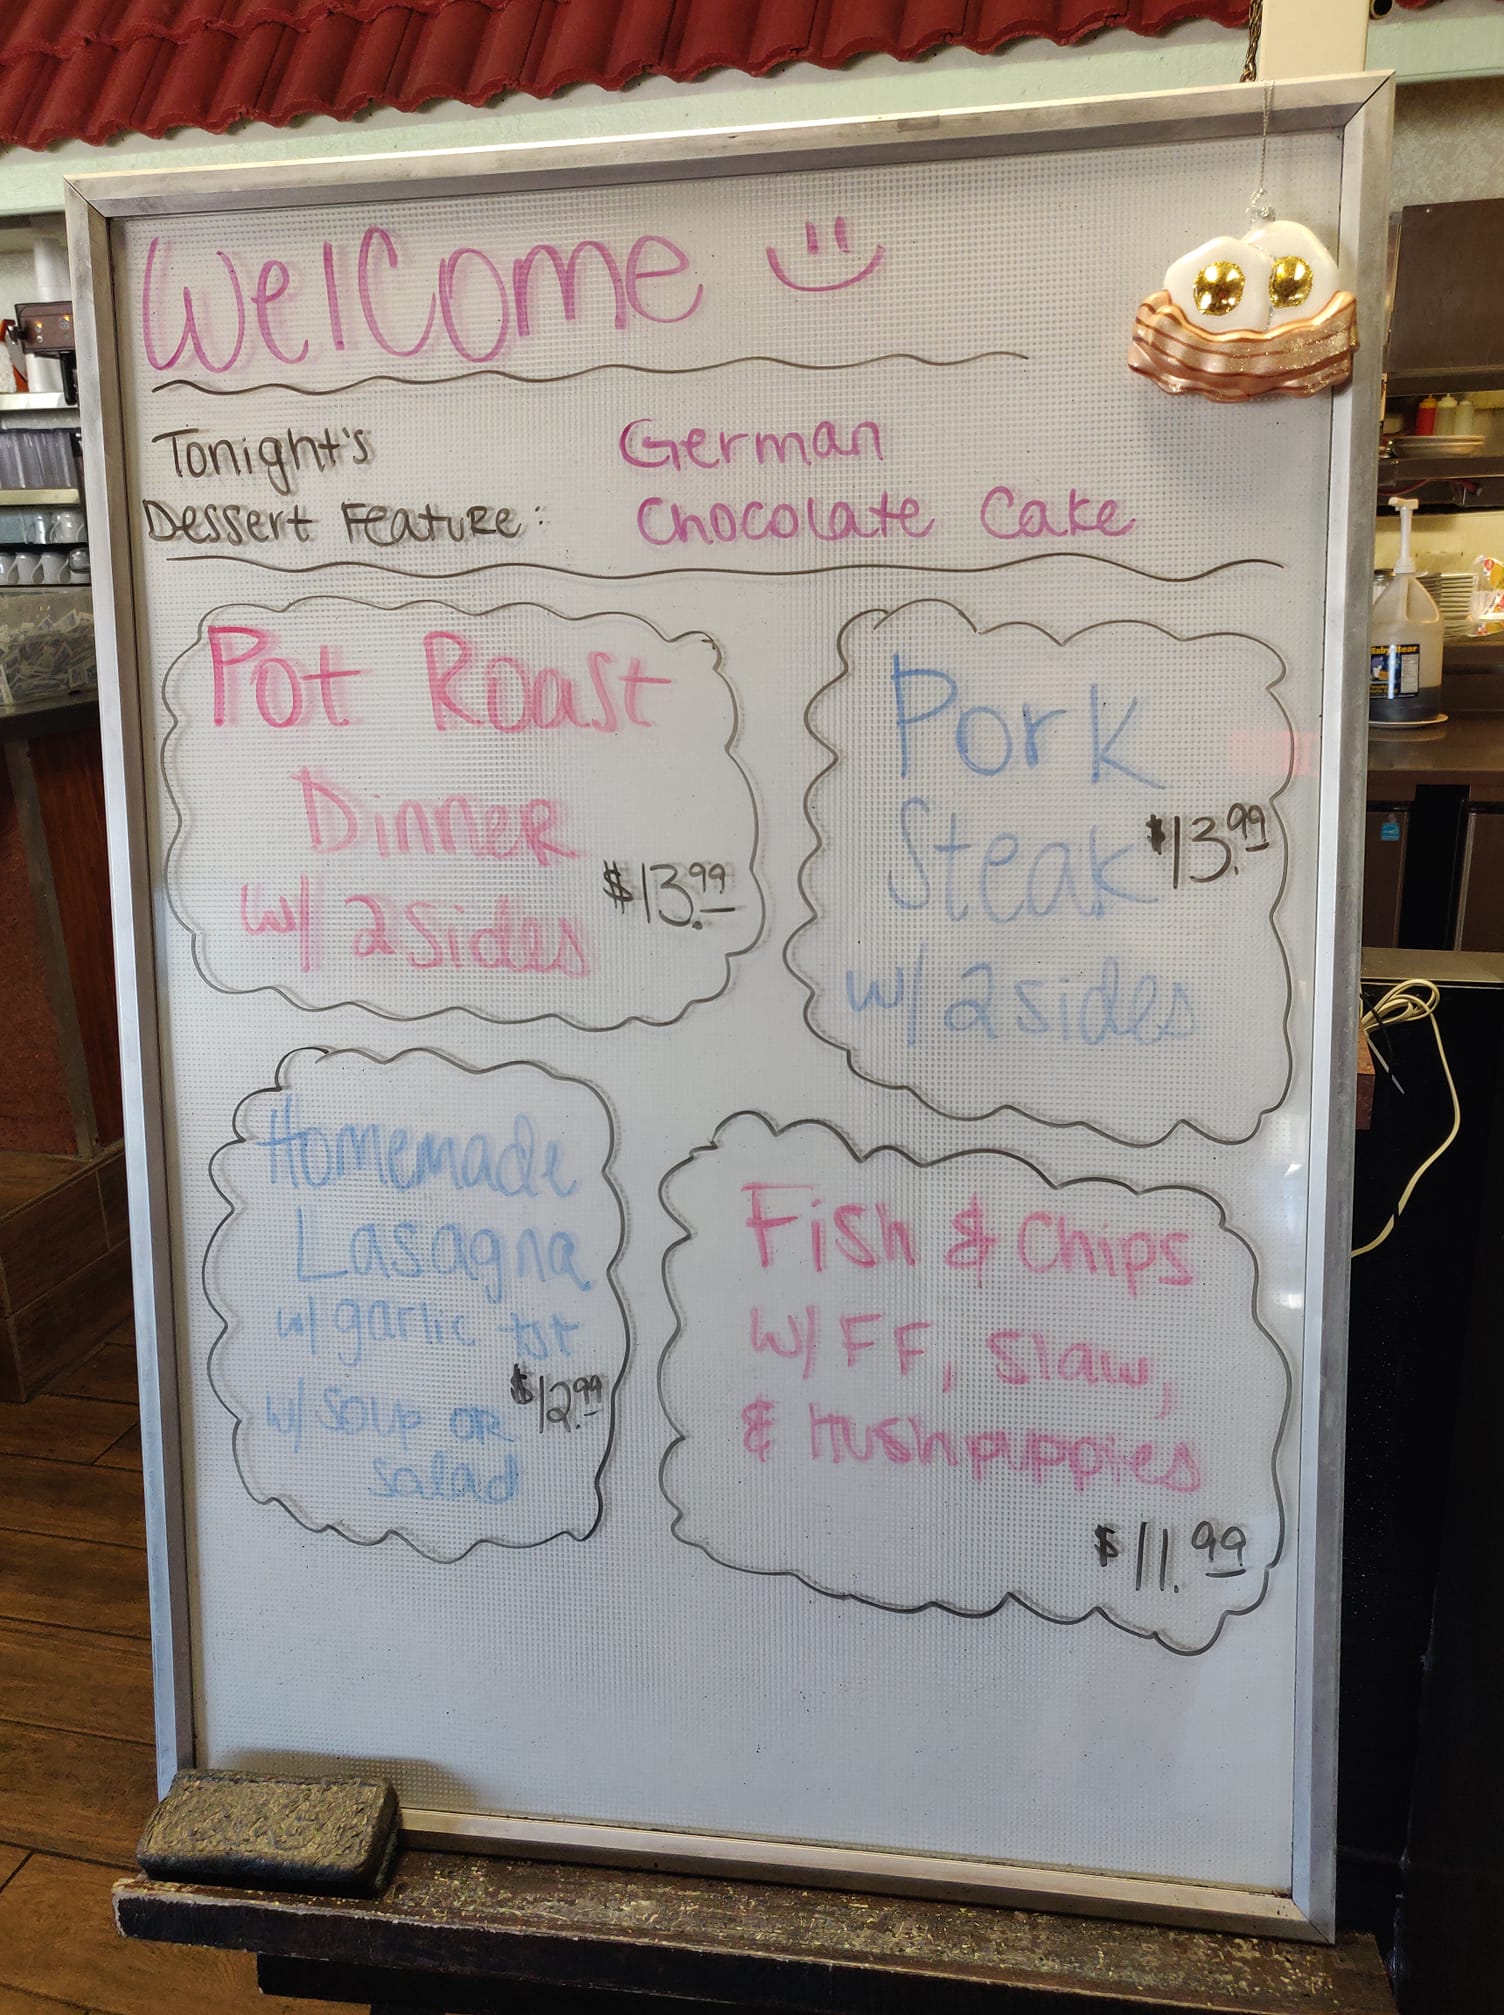 Welcome
Tonight's
Dessert Feature:
German
Chocolate Cake
Pot Roast
Dinner
w/ 2 sides
$13.99
Pork
Steak
$13.99
w/ 2 sides
Homemade
Lasagna
w/ garlic tst
$12.99
w/ soup or
salad
Fish & Chips
w/ FF, slaw,
& Hushpuppies
$11.99
Baby Bear